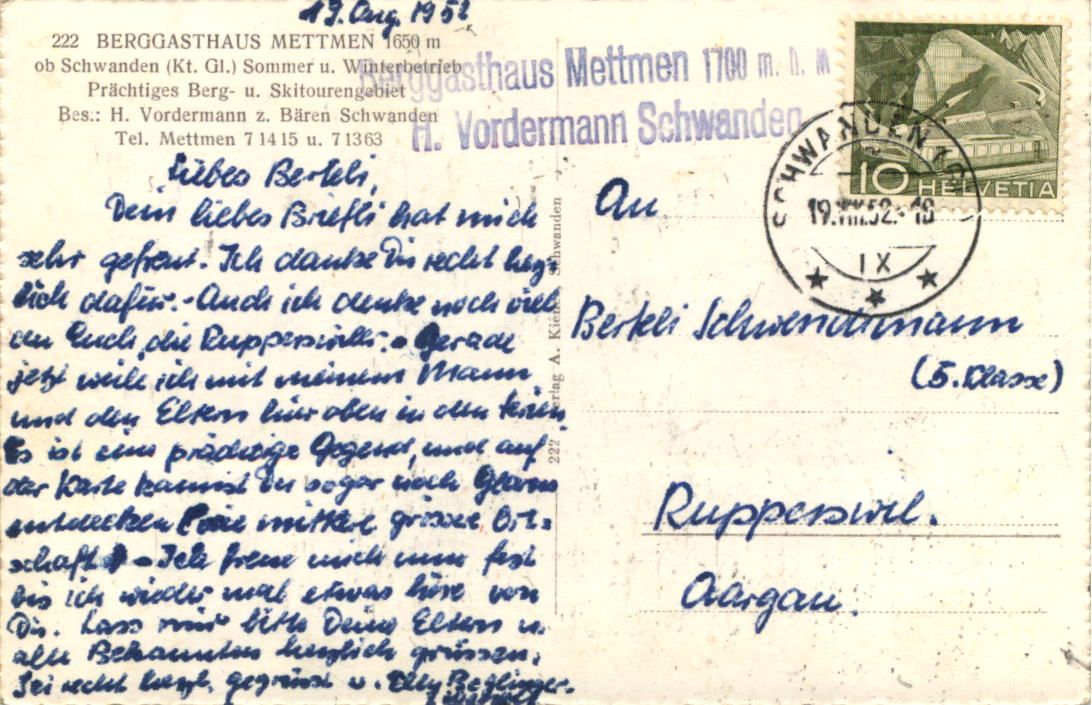 19. Aug. 1952
222 BERGGASTHAUS METTMEN 1650 m
ob Schwanden (Kt. Gl.) Sommer u. Winterbetrieb
Prächtiges Berg- u. Skitourengebiet
Bes.: H. Vordermann z. Bären Schwanden
Tel. Mettmen 7 14 15 u. 7 13 63
Berggasthaus Mettmen 1700 m. ü. M
H. Vordermann Schwanden
10 HELVETIA
SCHWANDEN
19.VIII.52.-18
IX
Liebes Berteli,
Dein liebes Briefli hat mich
sehr gefreut. Ich danke Dir recht herz-
lich dafür. - Auch ich denke noch viel
an Euch, die Rupperswiler. - Gerade
jetzt weile ich mit meinem Mann
und den Eltern hier oben in den Ferien
Es ist eine prächtige Gegend, und auf
der Karte kannst Du sogar noch Glarus
entdecken (die mittlere grössere Ort-
schaft) - Ich freue mich nun fest
bis ich wieder mal etwas höre von
Dir. Lass mir bitte Deine Eltern u.
alle Bekannten herzlich grüssen.
Sei recht herzl. gegrüsst u. Elly Beglinger.
222 Verlag A. Kiener, Schwanden
An
Berteli Schwendimann
(5. Klasse)
Rupperswil.
Aargau.